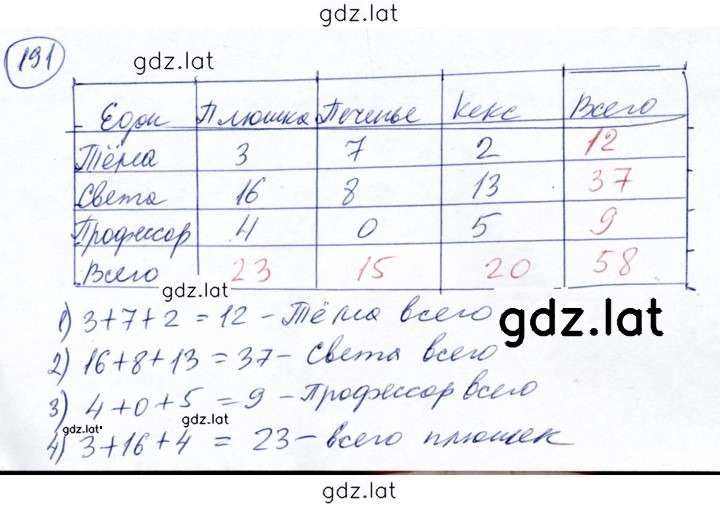 gdz.lat
191
gdz.lat
Едоки Плюшка Печенье Кекс Всего
Тёма 3 7 2 12
Света 16 8 13 37
Профессор 4 0 5 9
Всего 23 15 20 58
gdz.lat
1) 3+7+2=12 - Тёма всего
gdz.lat
2) 16+8+13=37 - Света всего
3) 4+0+5=9 - Профессор всего
gdz.lat gdz.lat
4) 3+16+4=23 - всего плюшек
gdz.lat